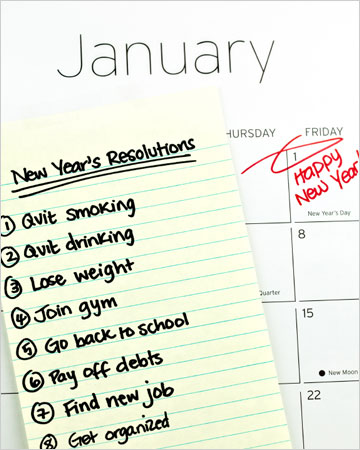 January
THURSDAY
FRIDAY
1
Happy
New Year!
New Year's Day
8
Quarter
15
New Moon
22
New Year's Resolutions
1 Quit smoking
2 Quit drinking
3 Lose weight
4 Join gym
5 Go back to school
6 Pay off debts
7 Find new job
8 Get organized